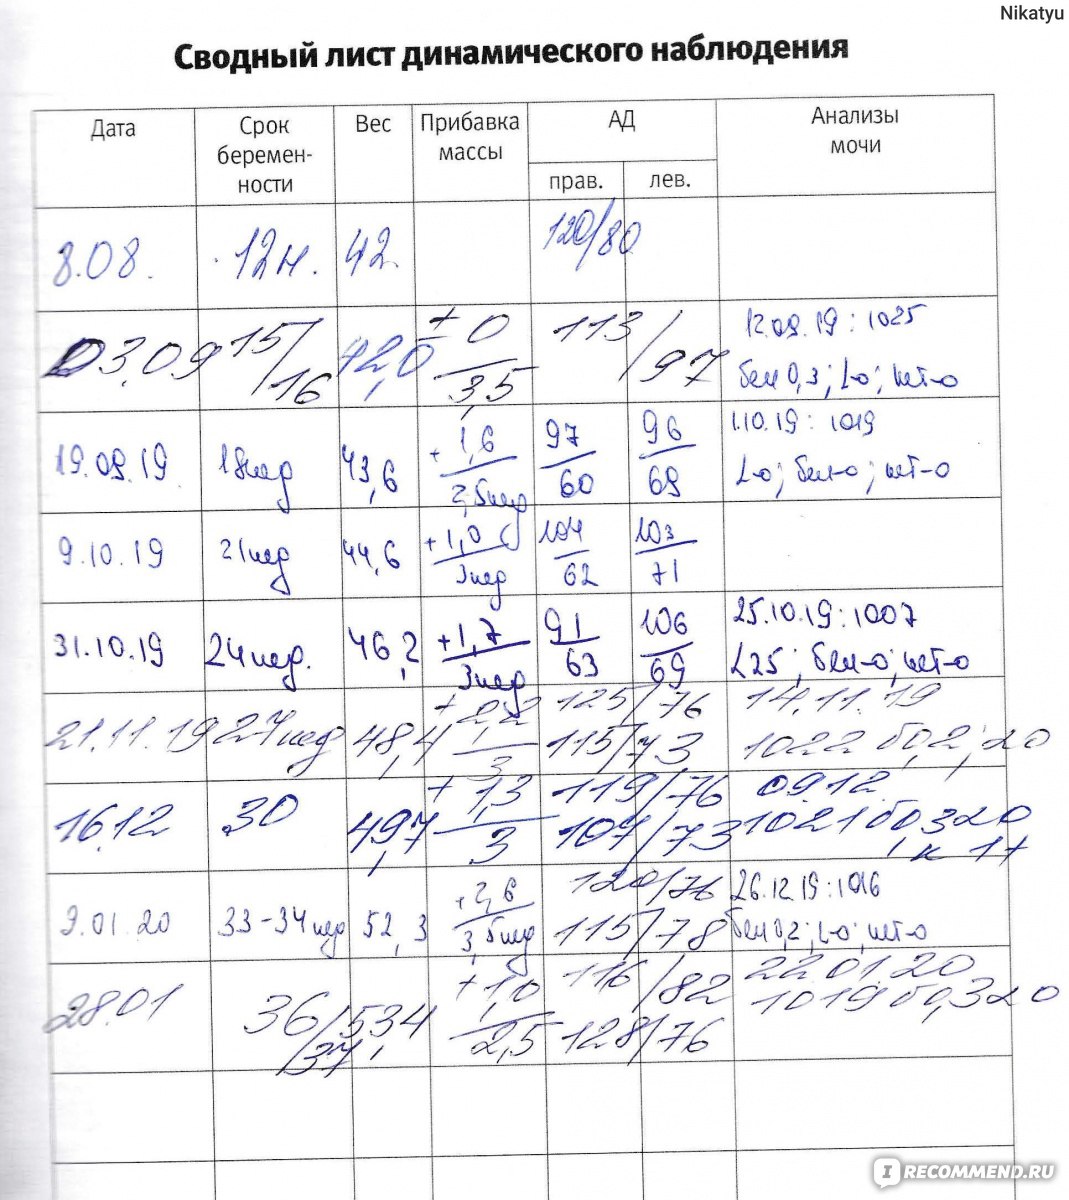 Nikatyu
Сводный лист динамического наблюдения
Дата
Срок беремен-ности
Вес
Прибавка массы
АД
прав.
лев.
Анализы мочи
8.08. 12н. 42 120/80
03.09 15/16 42,0 ±0/3,5 113/97 12.09.19: 1025
бел 0,3; L-0; кет-0
19.09.19 18нед 43,6 +1,6/2,5нед 97/60 96/69 1.10.19: 1019
L-0; бел-0; кет-0
9.10.19 21нед 44,6 +1,0/3нед 104/62 103/71
31.10.19 24нед. 46,2 +1,7/3нед 91/63 106/69 25.10.19: 1007
L25; бел-0; кет-0
21.11.19 27нед 48,4 +2,2/3 125/76 14.11.19
115/73 1022 б0,2; L0
16.12 30 49,7 +1,3/3 119/76 09.12.
107/73 1021 б0,3 L0
к 1+
9.01.20 33-34нед 52,3 +2,6/3,5нед 120/76 26.12.19: 1016
115/78 бел 0,2; L-0; кет-0
28.01 36/37 53,4 +1,0/2,5 116/82 22.01.20
128/76 1019 б0,3 L0
IRECOMMEND.RU